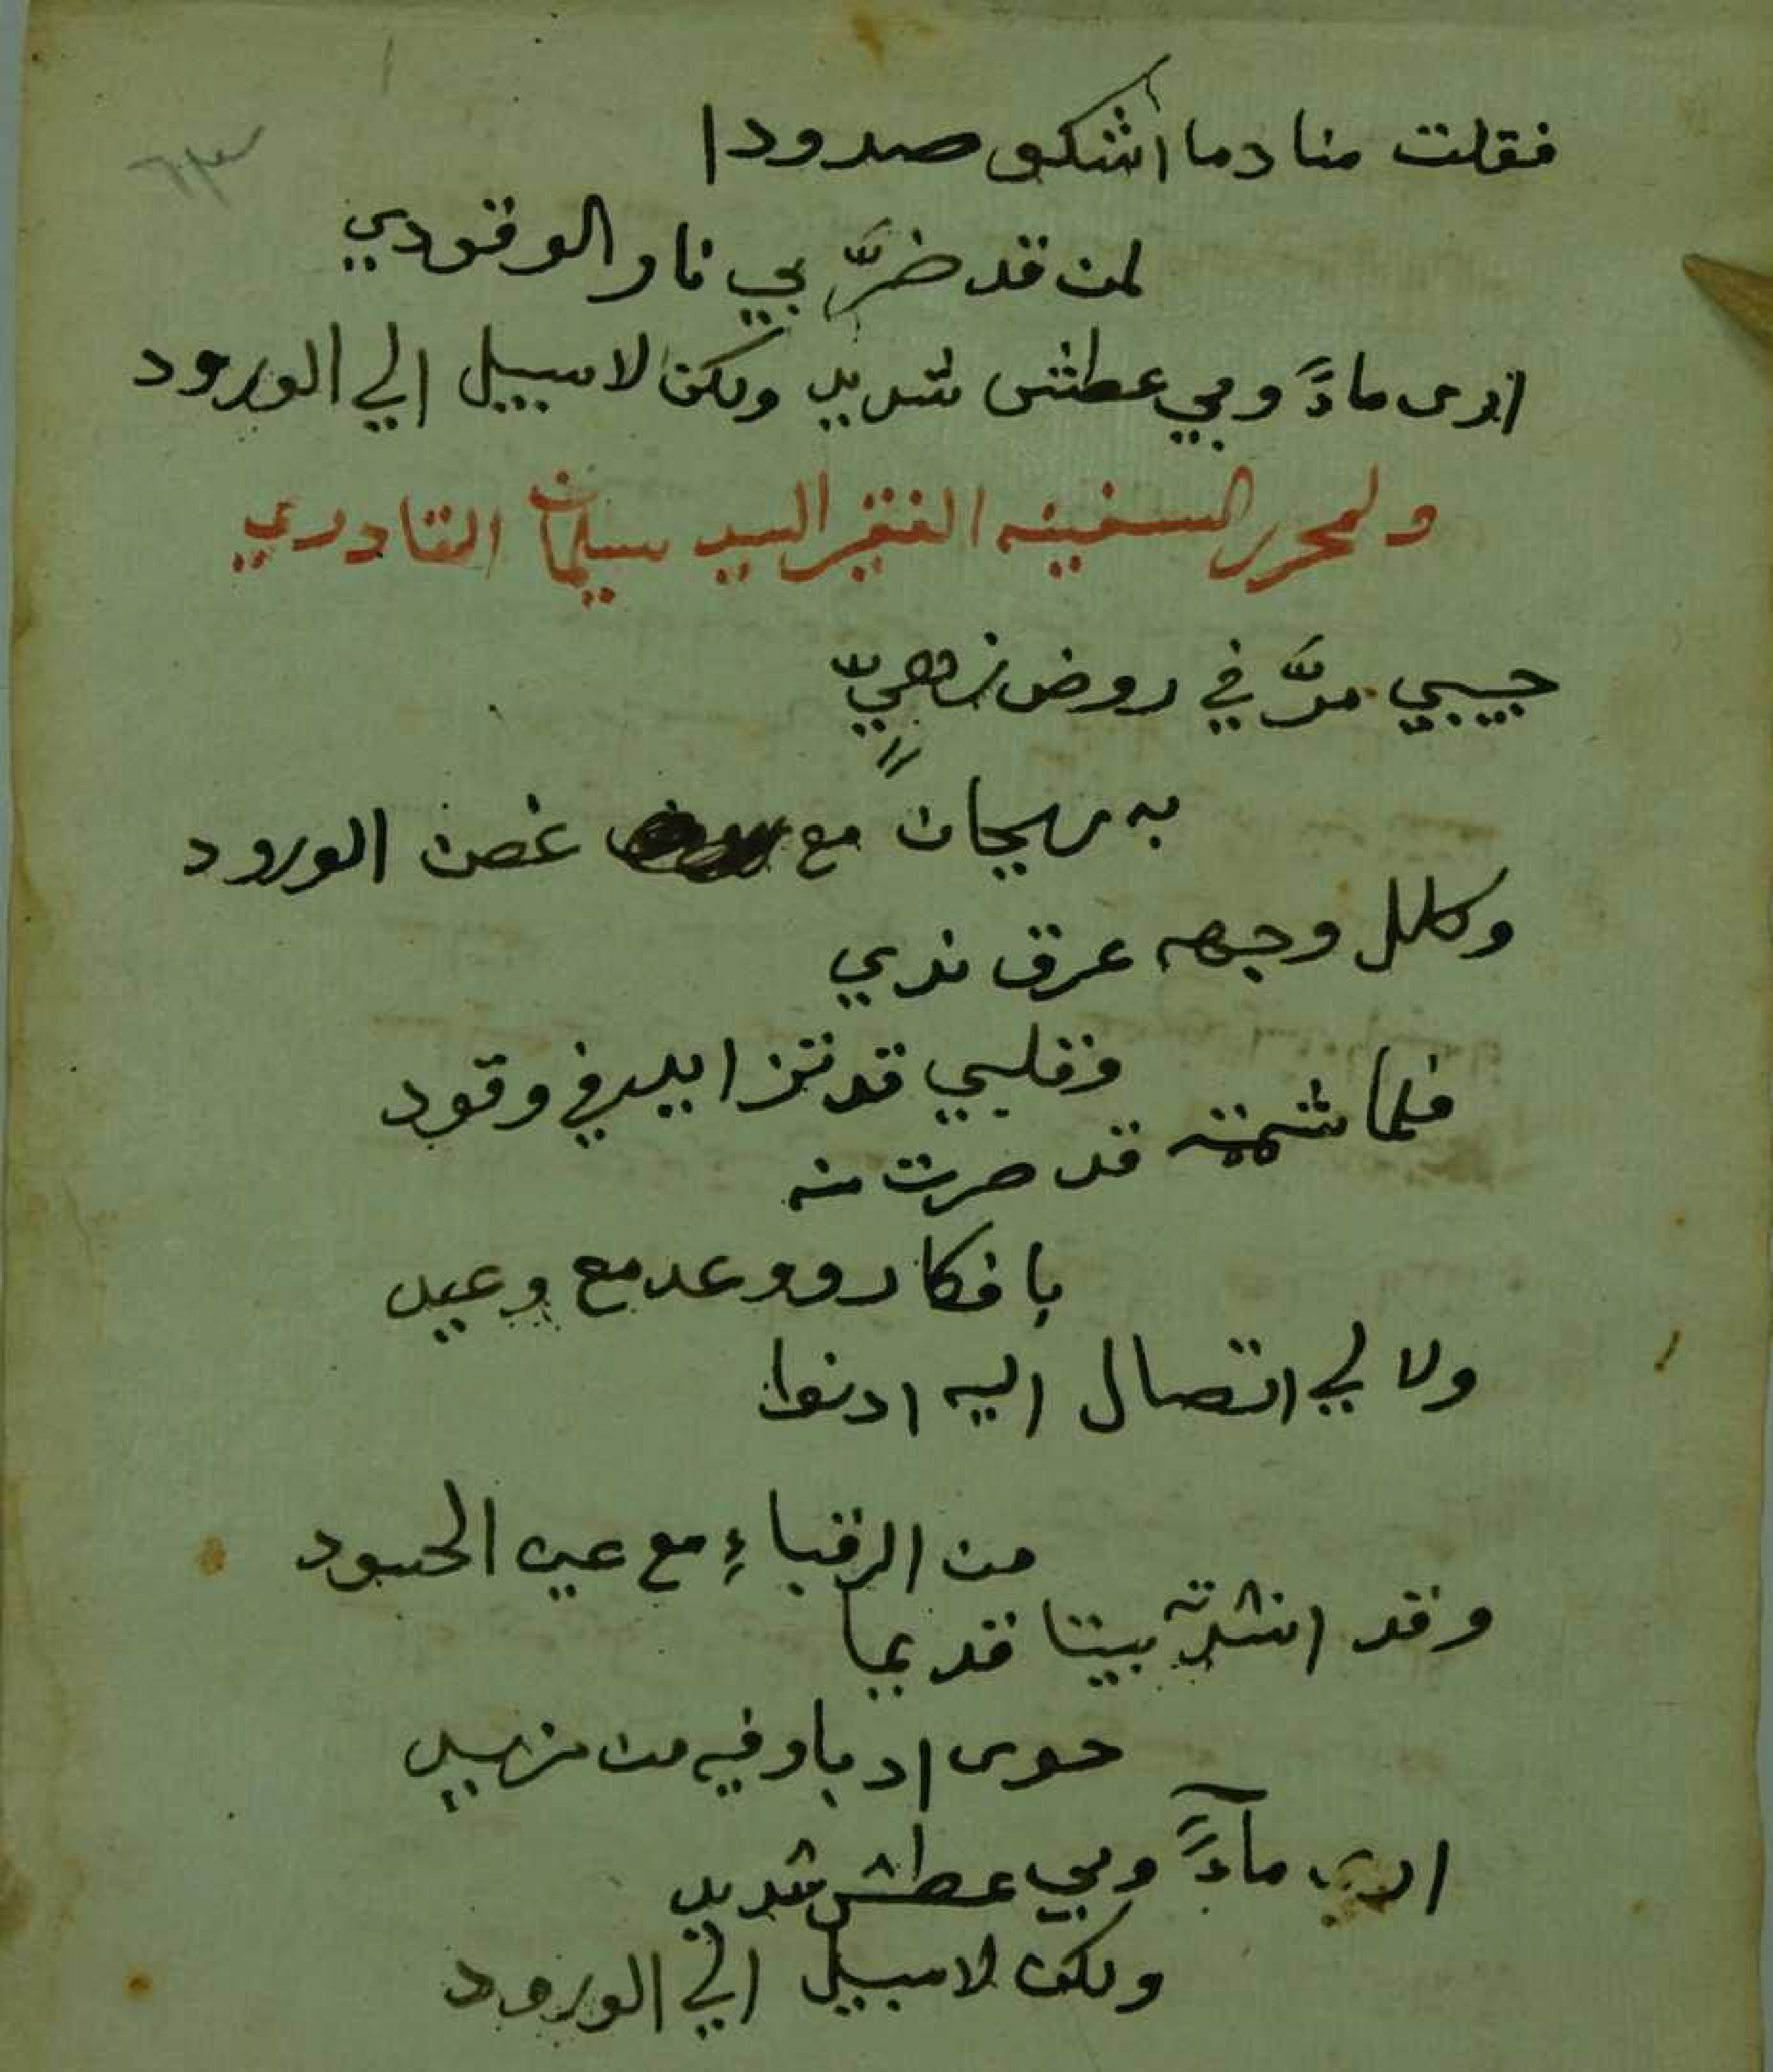 ٦٣
فقلت منادما اشكو صدودا
لمن قد ضرَّ بي نار الوقودي
ارى ماءً وبي عطش شديد ولكن لا سبيل الي الورود
ولمحرر السفينه الفقير السيد سيلمان القادري
حبيبي مرَّ في روض زهيٍّ
به ريحان مع غصن الورود
وكلل وجهه عرق ندي
فقلبي قد تزايد في وقود
فلما شمته قد صرت منه
بافكار ووعد مع وعيد
ولا لي اتصال اليه ادنوا
من الرقباءِ مع عين الحسود
وقد انشدته بيتا قديما
حوى ادبا وفيه من مزيد
ارى مآءً وبي عطش شديد
ولكن لا سبيل الي الورود